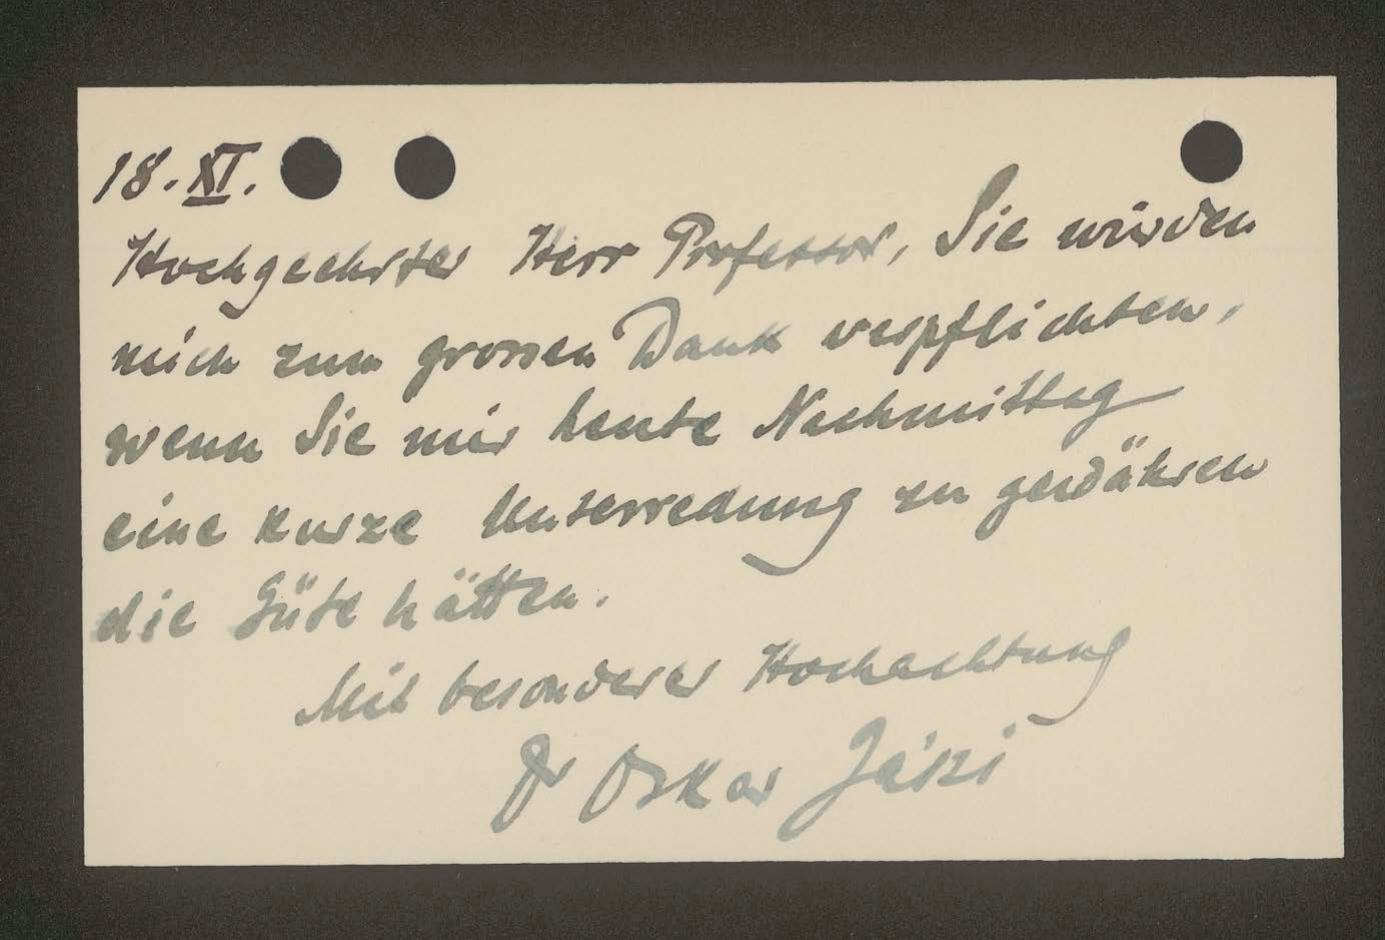 18. XI.
Hochgeehrter Herr Professor, Sie würden
mich zum grossen Dank verpflichten,
wenn Sie mir heute Nachmittag
eine kurze Unterredung zu gewähren
die Güte hätten.
Mit besonderer Hochachtung
Dr Oskar Jászi